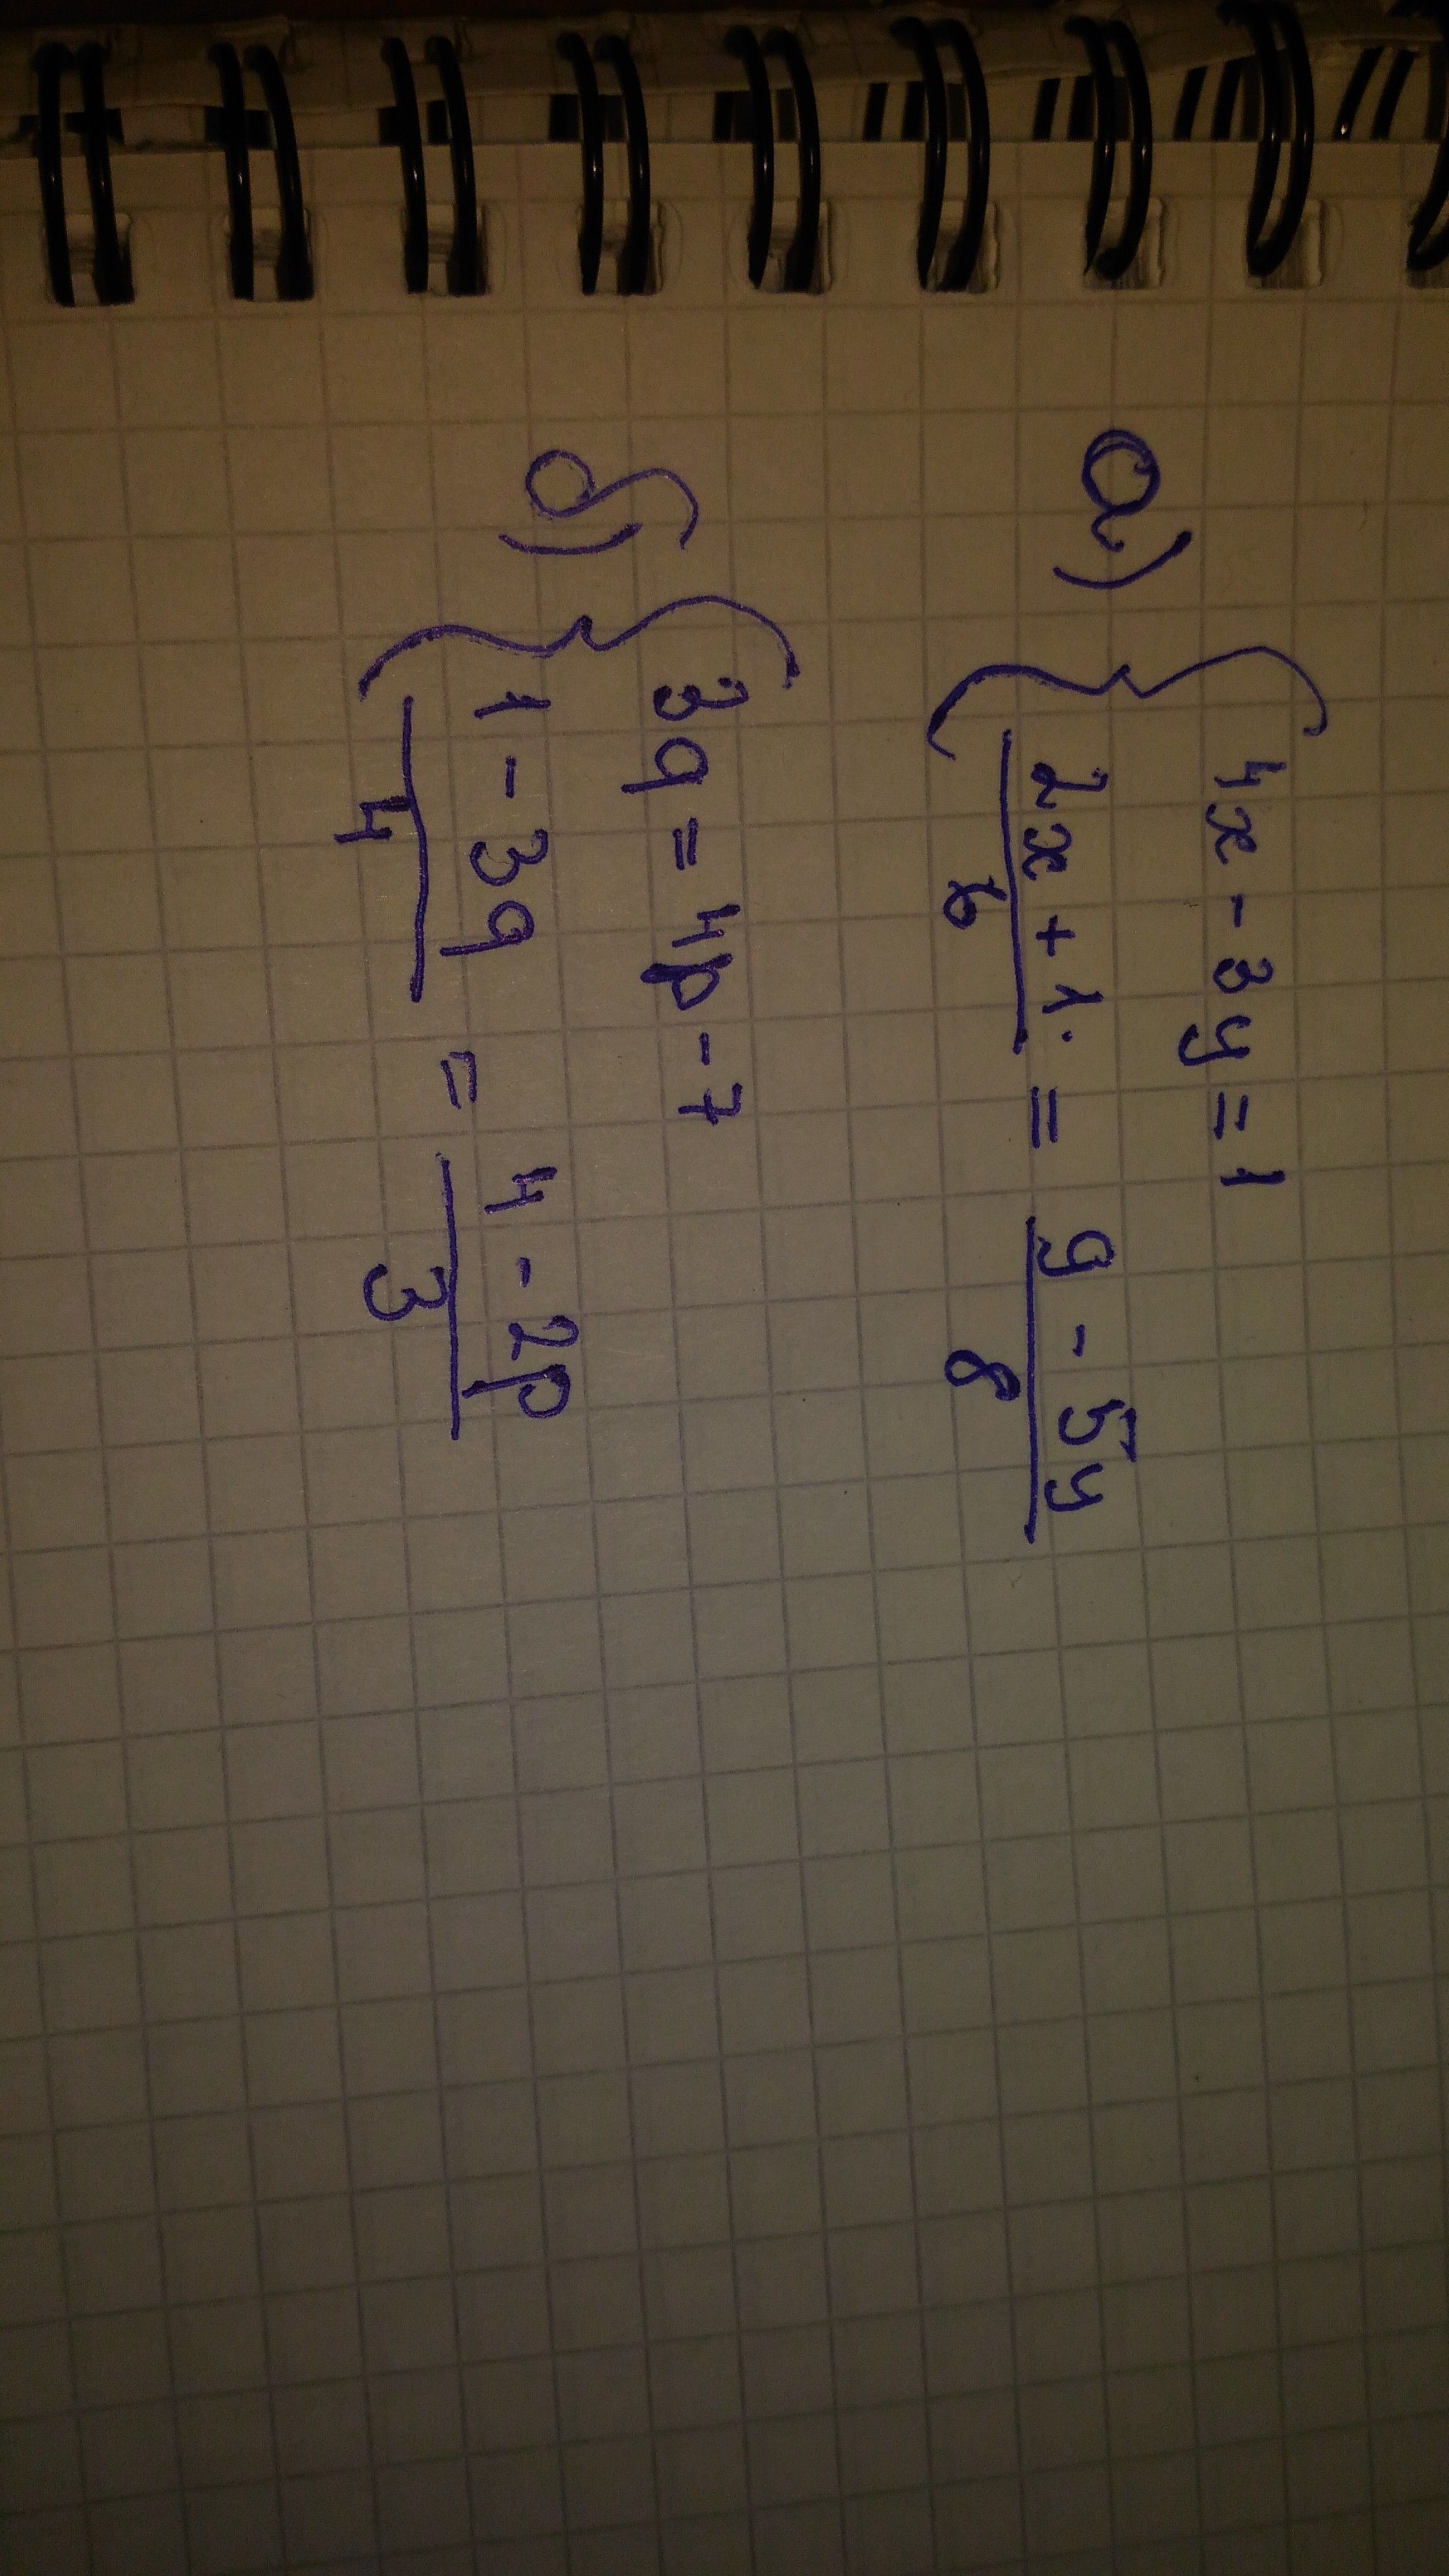 а) { 4x - 3y = 1
2x + 1 / 6 = 9 - 5y / 8
б) { 3q = 4p - 7
1 - 3q / 4 = 4 - 2p / 3